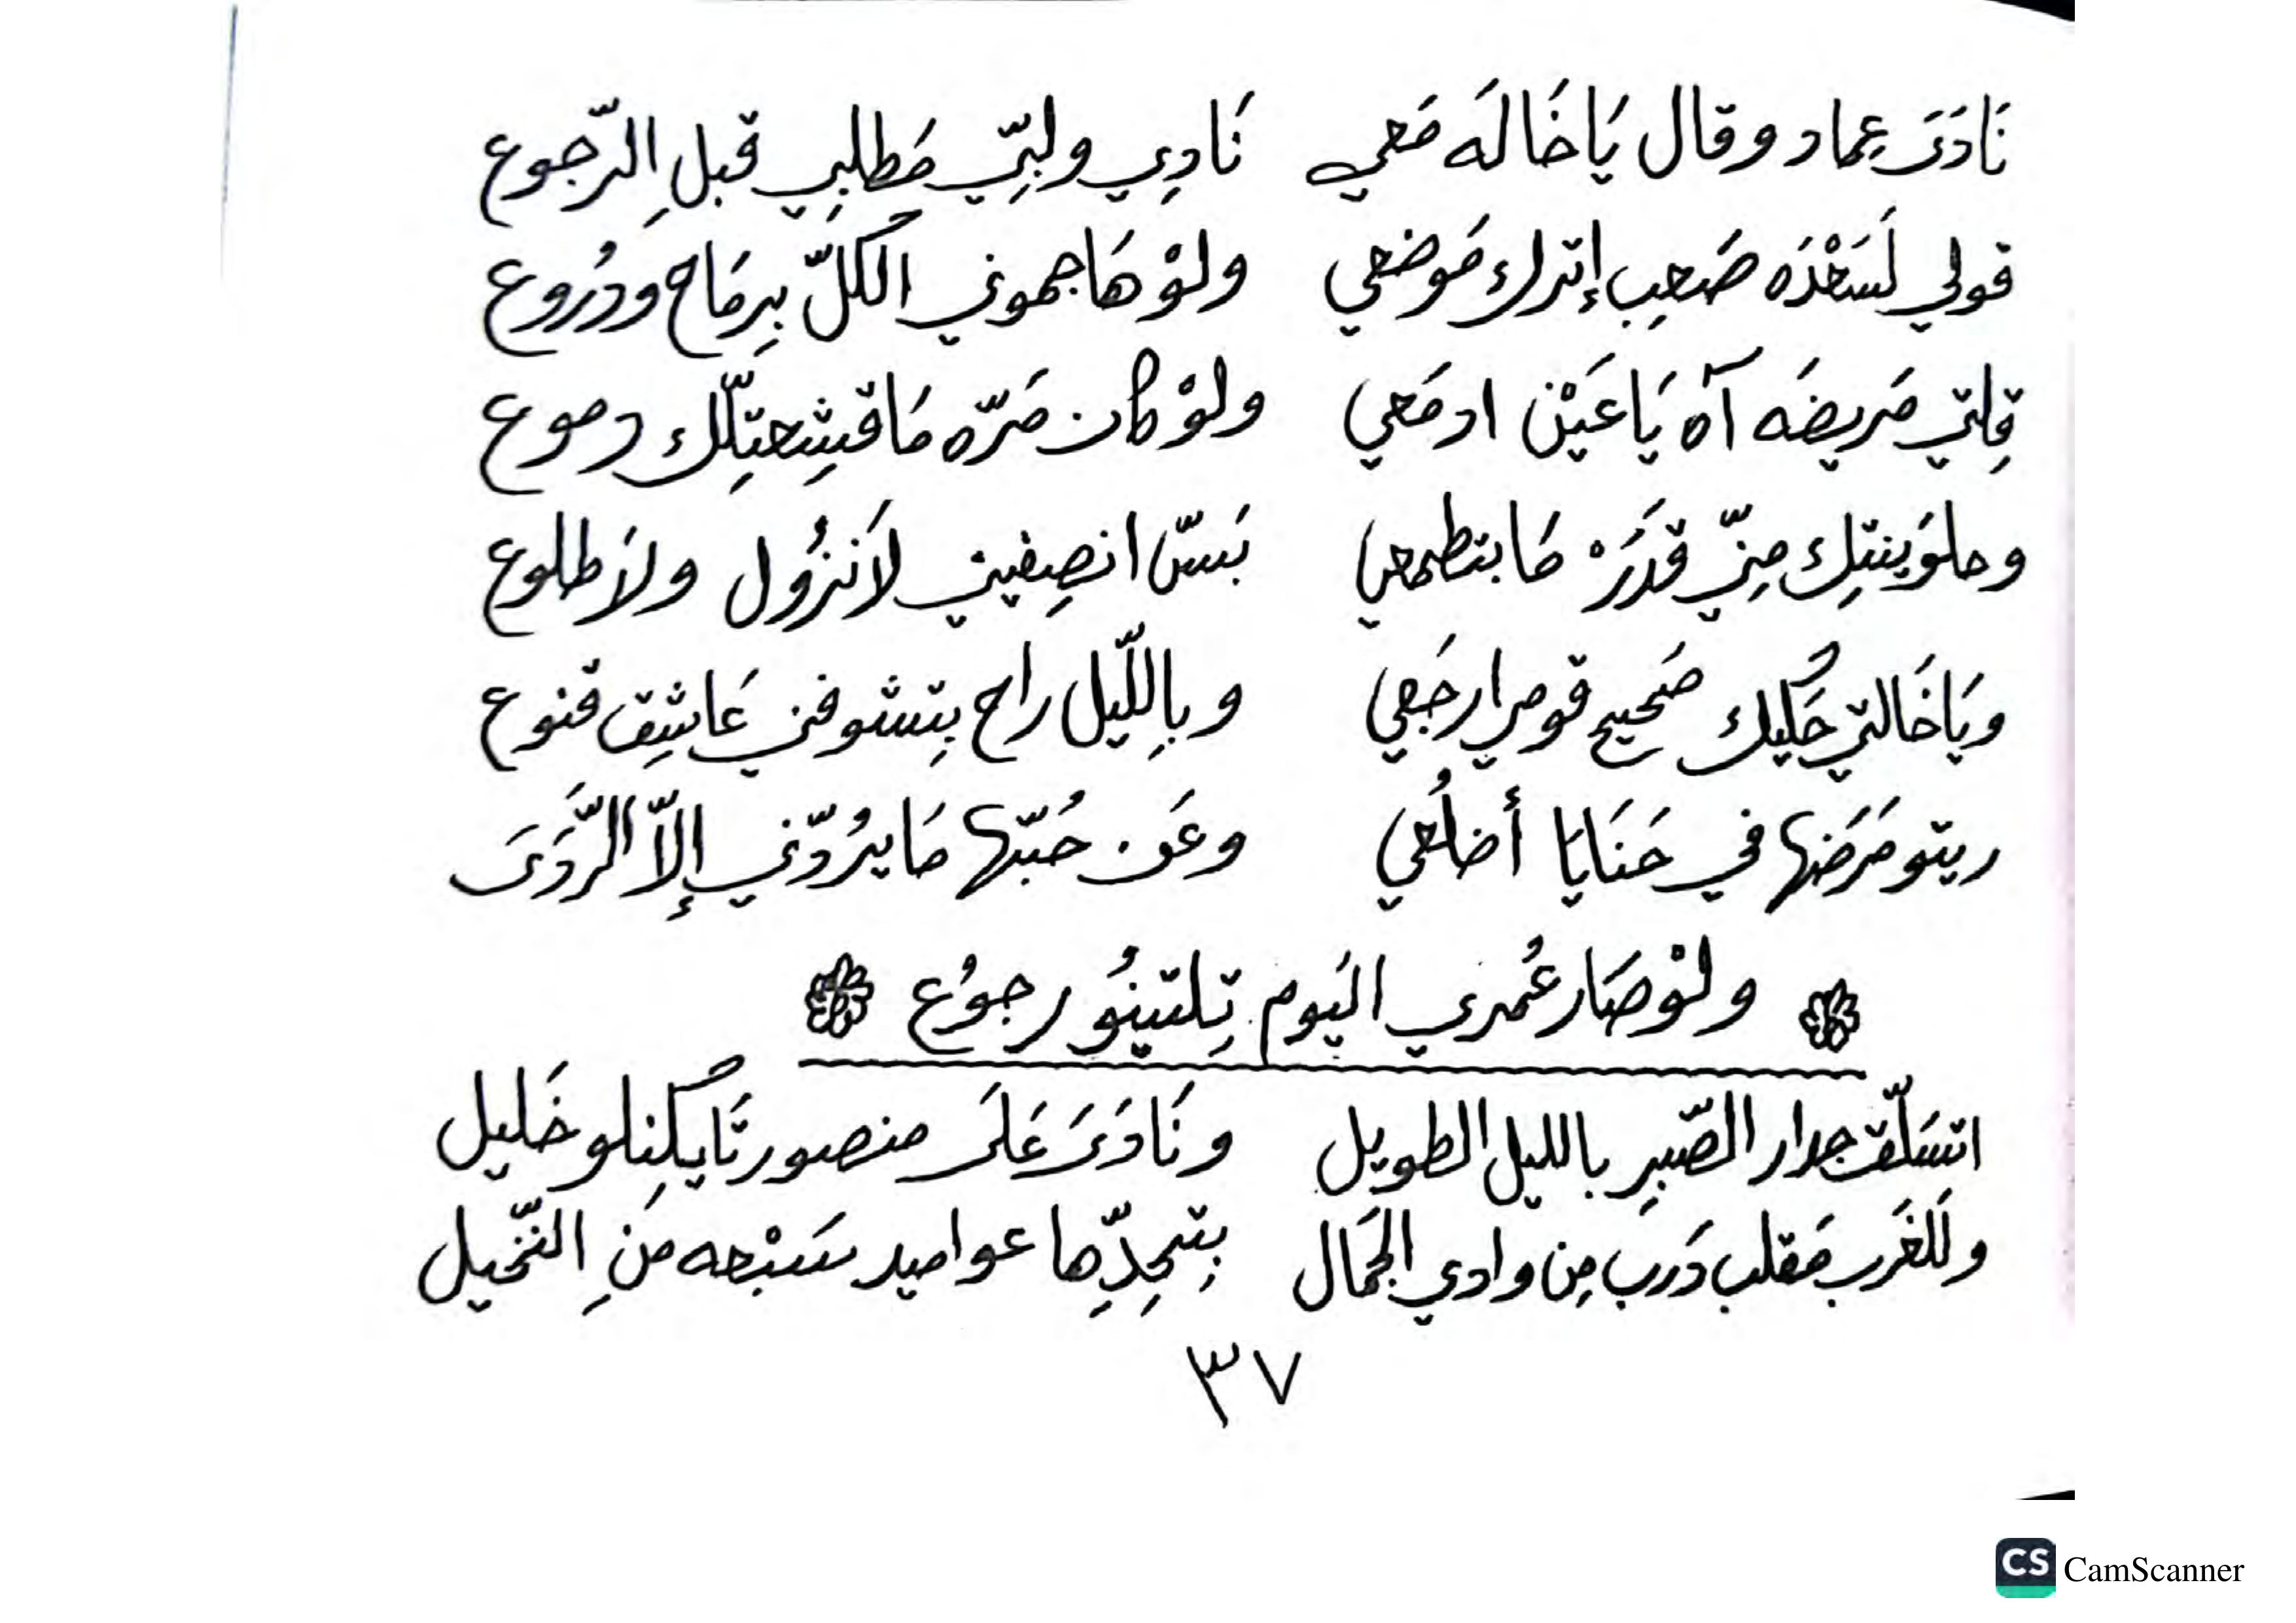 نَادَىَ عِماد وقال يَاخَالَه مَعي نَادِي ولبِّي مَطلبِي قبلِ الرّجوع
قولي لَسَعْدَه صَعِب إترك مَوضعي ولوْ هَاجموني الكلّ بِرمَاح ودُروع
قِلتي مَريضَه آه يَاعَيْن ادمَعي ولوْ كان مَرّه مَاقشِعتِلّك دموع
وحلوَينتِك مِنّي قدَرَْ مَابتطمعي بَسّ انصِفيني لاَنزُول ولاَطلوع
ويَاخَالتي حَكيك صَحيح قومي ارجَعي وبِاللّيل راح بِتشوفني عَاشِق قنوع
ريتو مَرَضها في حَنَايَا أضلُعي وعَن حُبّها مَايرُدّني إلاّ الرَّدَىَ
ولوْصَار عُمري اليَوم تِلتينُو رجوُع
اتسَلّق جدار الصّبِر بالليل الطويل ونَادَىَ عَلىَ منصور تَايكِنلو خَليل
وللغَرب مَقلب دَرب مِن وادي الجَمال بِتحِدِّها عواميد سَبْعه مَنِ النّخيل
٣٧
CS CamScanner